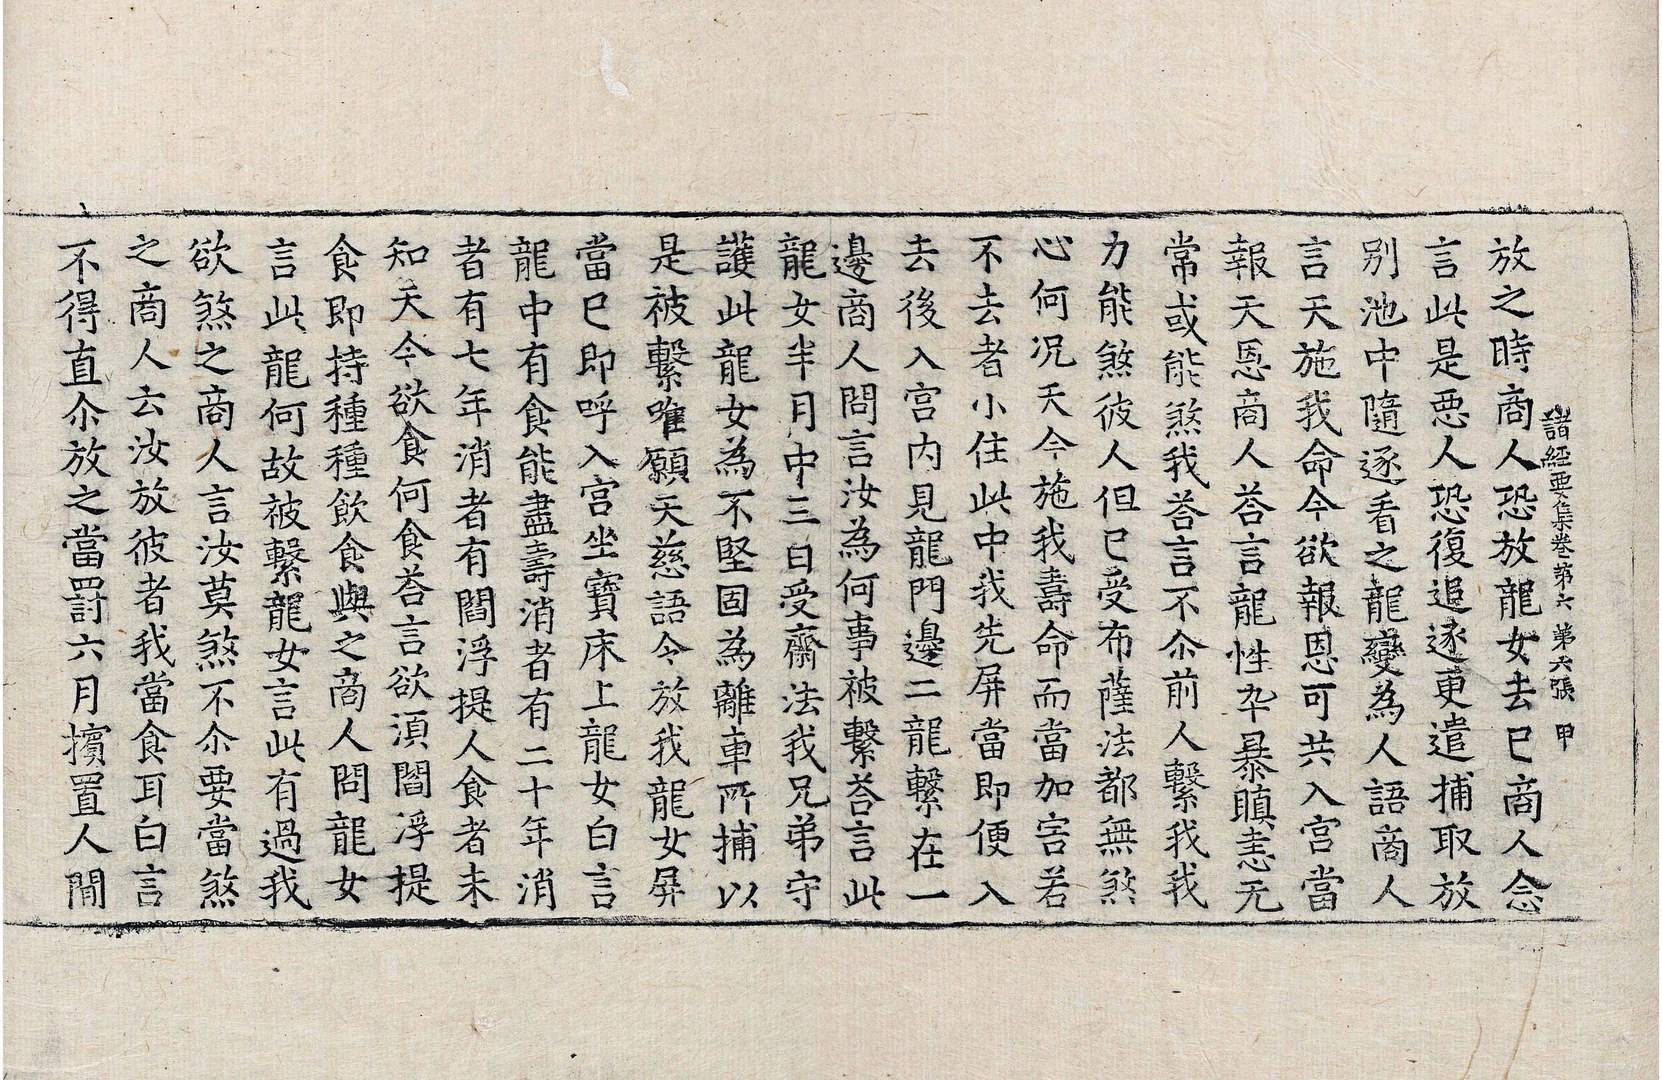 諸經要集卷第六 第六張 甲
放之時商人恐放龍女去已商人念
言此是惡人恐復追逐更遣捕取放
別池中隨逐看之龍變為人語商人
言天施我命今欲報恩可共入宮當
報天恩商人荅言龍性卒暴瞋恚无
常或能煞我荅言不尒前人繫我我
力能煞彼人但已受布薩法都無煞
心何况天今施我壽命而當加害若
不去者小住此中我先屏當即便入
去後入宮內見龍門邊二龍繫在一
邊商人問言汝為何事被繫荅言此
龍女半月中三日受齋法我兄弟守
護此龍女為不堅固為離車所捕以
是被繫唯願天慈語令放我龍女屏
當已即呼入宮坐寶床上龍女白言
龍中有食能盡壽消者有二十年消
者有七年消者有閻浮提人食者未
知天今欲食何食荅言欲湏閻浮提
食即持種種飲食與之商人問龍女
言此龍何故被繫龍女言此有過我
欲煞之商人言汝莫煞不尒要當煞
之商人云汝放彼者我當食耳白言
不得直尒放之當罰六月擯置人間